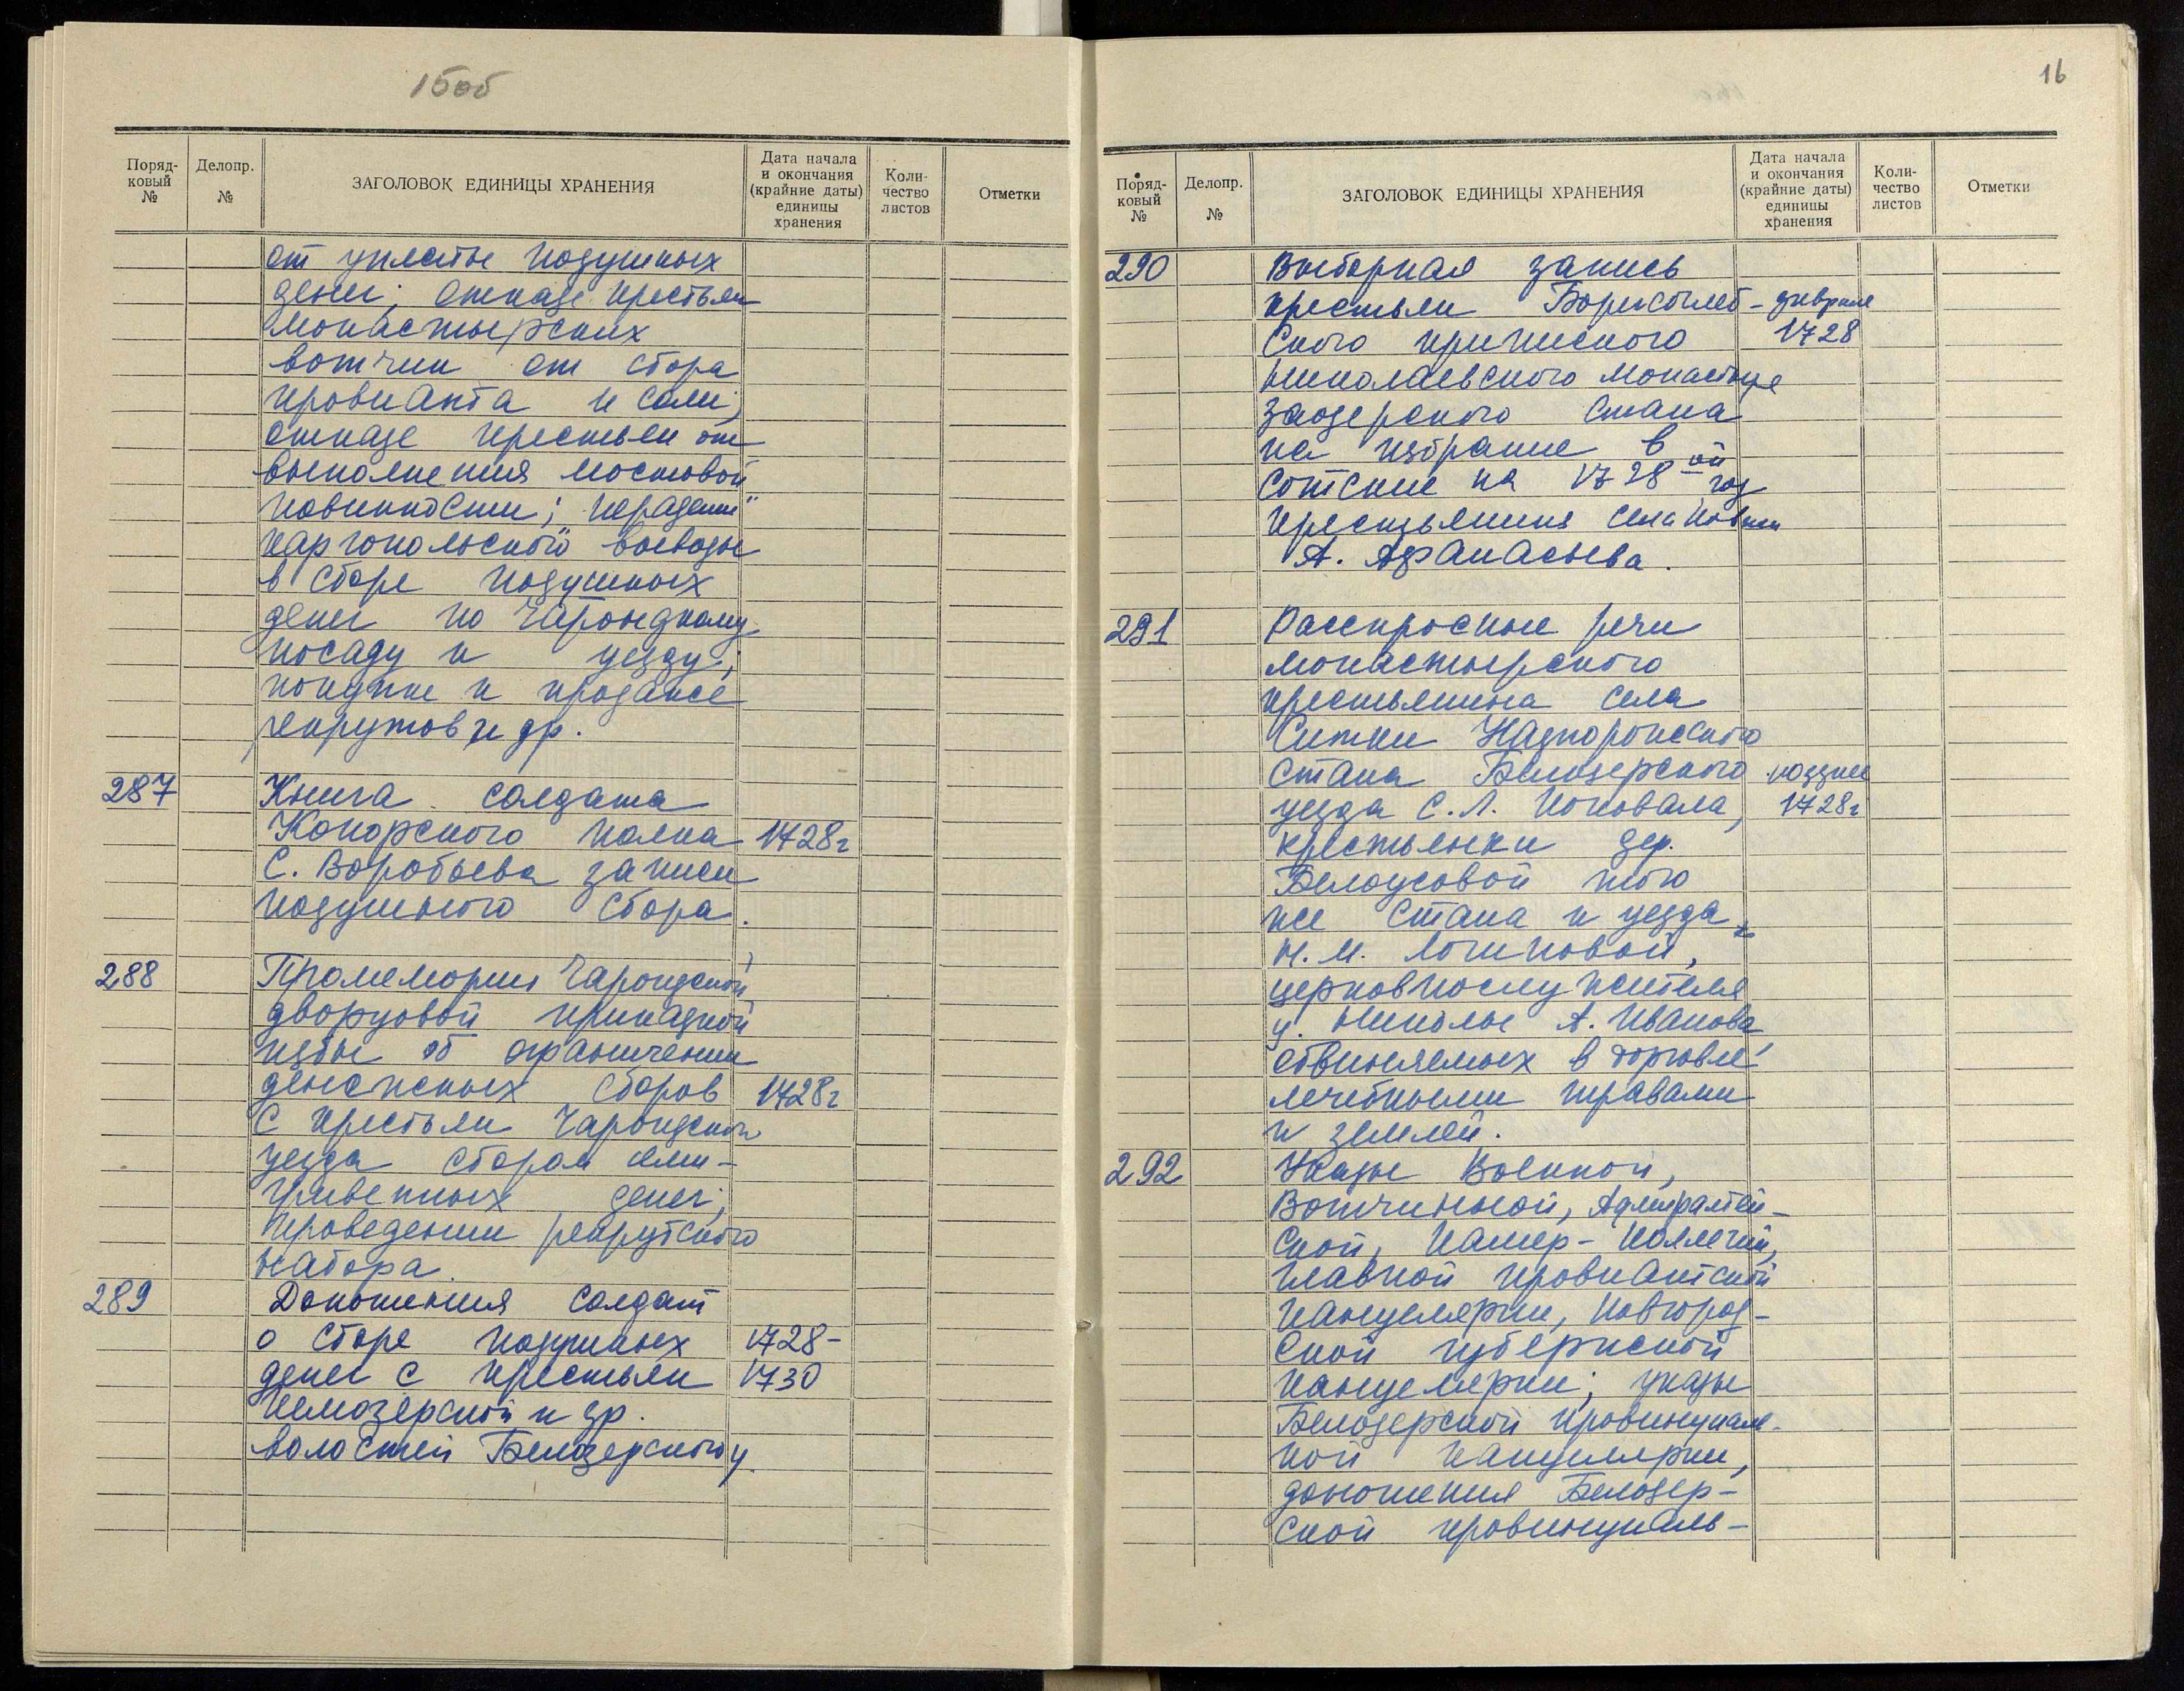 15об
Поряд-
ковый
№
Делопр.
№
ЗАГОЛОВОК ЕДИНИЦЫ ХРАНЕНИЯ
Дата начала
и окончания
(крайние даты)
единицы
хранения
Коли-
чество
листов
Отметки
от уплаты подушных
денег; отказе крестьян
монастырских
вотчин от сбора
провианта и соли;
отказе крестьян от
выполнения мостовой
повинности; нерадении
каргопольской воеводы
в сборе подушных
денег по Чарондкому
посаду и уезду;
покупке и продаже
рекрутов и др.
287
Книга солдата
Копорского полка 1728г
С. Воробьева записи
подушного сбора.
288
Промемория Чарондской
дворцовой приказной
избы об ограничении
денежных сборов 1728г
с крестьян Чарондской
уезда сбором семи-
гривенных денег;
проведении рекрутского
набора.
289
Доношения солдат
о сборе подушных 1728-
денег с крестьян 1730
Кемозерской и др.
волостей Белозерского у.
16
Поряд-
ковый
№
Делопр.
№
ЗАГОЛОВОК ЕДИНИЦЫ ХРАНЕНИЯ
Дата начала
и окончания
(крайние даты)
единицы
хранения
Коли-
чество
листов
Отметки
290
Выборная запись
крестьян Борисоглеб- февраля
ского приписного 1728
Николаевского монастыря
Заозерского стана
на избрание в
сотские на 1728-ой год
крестьянина села
А. Афанасьева.
291
Расспросные речи
монастырского
крестьянина села
Ситки Надпорожского
стана Белозерского позднее
уезда С.Л. Коновала, 1728г
крестьянки дер.
Белоусовой того
же стана и уезда
Н.М. Логиновой,
церковнослужителя
ц. Николы А. Иванова
обвиняемых в торговле
лечебными травами
и землей.
292
Указы Военной,
Вотчинной, Адмиралтей-
ской, Камер-Коллегий,
главной провиантской
канцелярии, Новгород-
ской губернской
канцелярии; указы
Белозерской провинциаль-
ной канцелярии,
доношения Белозер-
ской провинциаль-